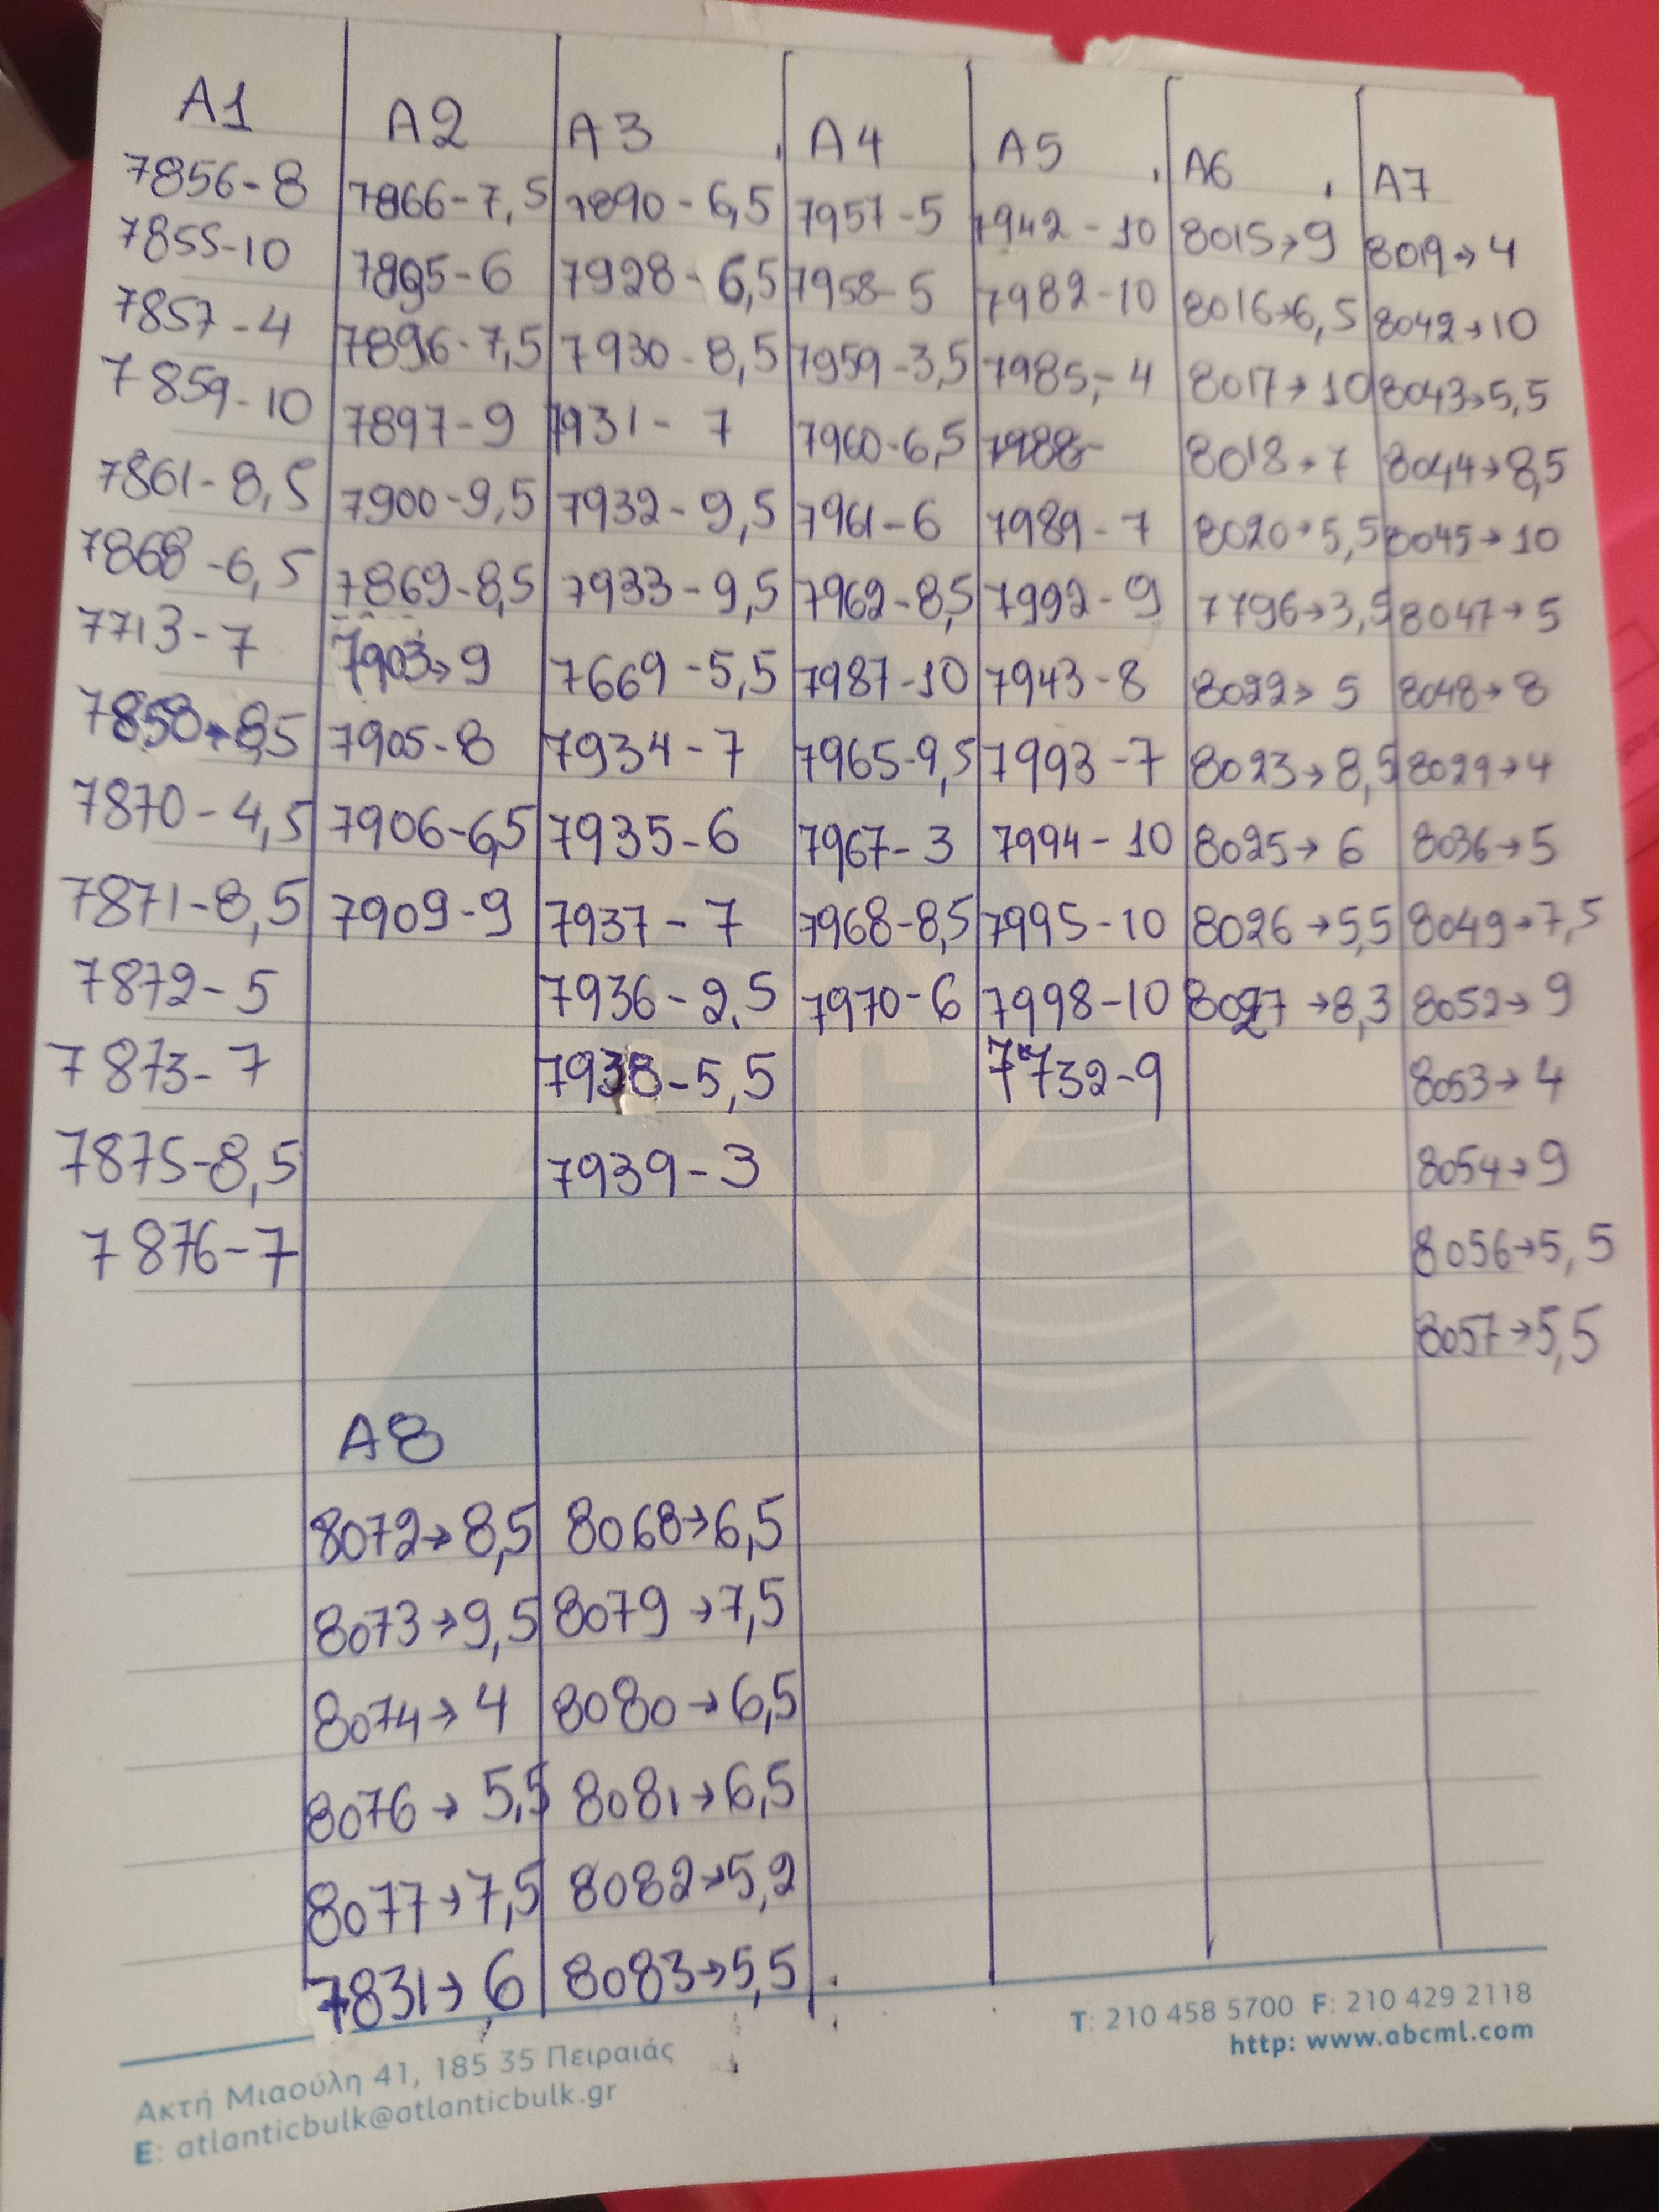 A1
7856-8
7855-10
7857-4
7859-10
7861-8,5
7868-6,5
7713-7
7858→8,5
7870-4,5
7871-8,5
7872-5
7873-7
7875-8,5
7876-7
A2
7866-7,5
7895-6
7896-7,5
7897-9
7900-9,5
7869-8,5
7903→9
7905-8
7906-6,5
7909-9
A3
7890-6,5
7928-6,5
7930-8,5
7931-7
7932-9,5
7933-9,5
7669-5,5
7934-7
7935-6
7937-7
7936-2,5
7938-5,5
7939-3
A4
7957-5
7958-5
7959-3,5
7960-6,5
7961-6
7962-8,5
7987-10
7965-9,5
7967-3
7968-8,5
7970-6
A5
7942-10
7982-10
7985-4
7988-
7989-7
7992-9
7943-8
7993-7
7994-10
7995-10
7998-10
7732-9
A6
8015→9
8016→6,5
8017→10
8018→7
8020→5,5
7796→3,5
8022→5
8023→8,5
8025→6
8026→5,5
8027→8,3
A7
8019→4
8042→10
8043→5,5
8044→8,5
8045→10
8047→5
8048→8
8029→4
8036→5
8049→7,5
8052→9
8053→4
8054→9
8056→5,5
8057→5,5
A8
8072→8,5
8073→9,5
8074→4
8076→5,5
8077→7,5
7831→6
8068→6,5
8079→7,5
8080→6,5
8081→6,5
8082→5,2
8083→5,5
Ακτή Μιαούλη 41, 185 35 Πειραιάς
E: atlanticbulk@atlanticbulk.gr
T: 210 458 5700 F: 210 429 2118
http: www.abcml.com